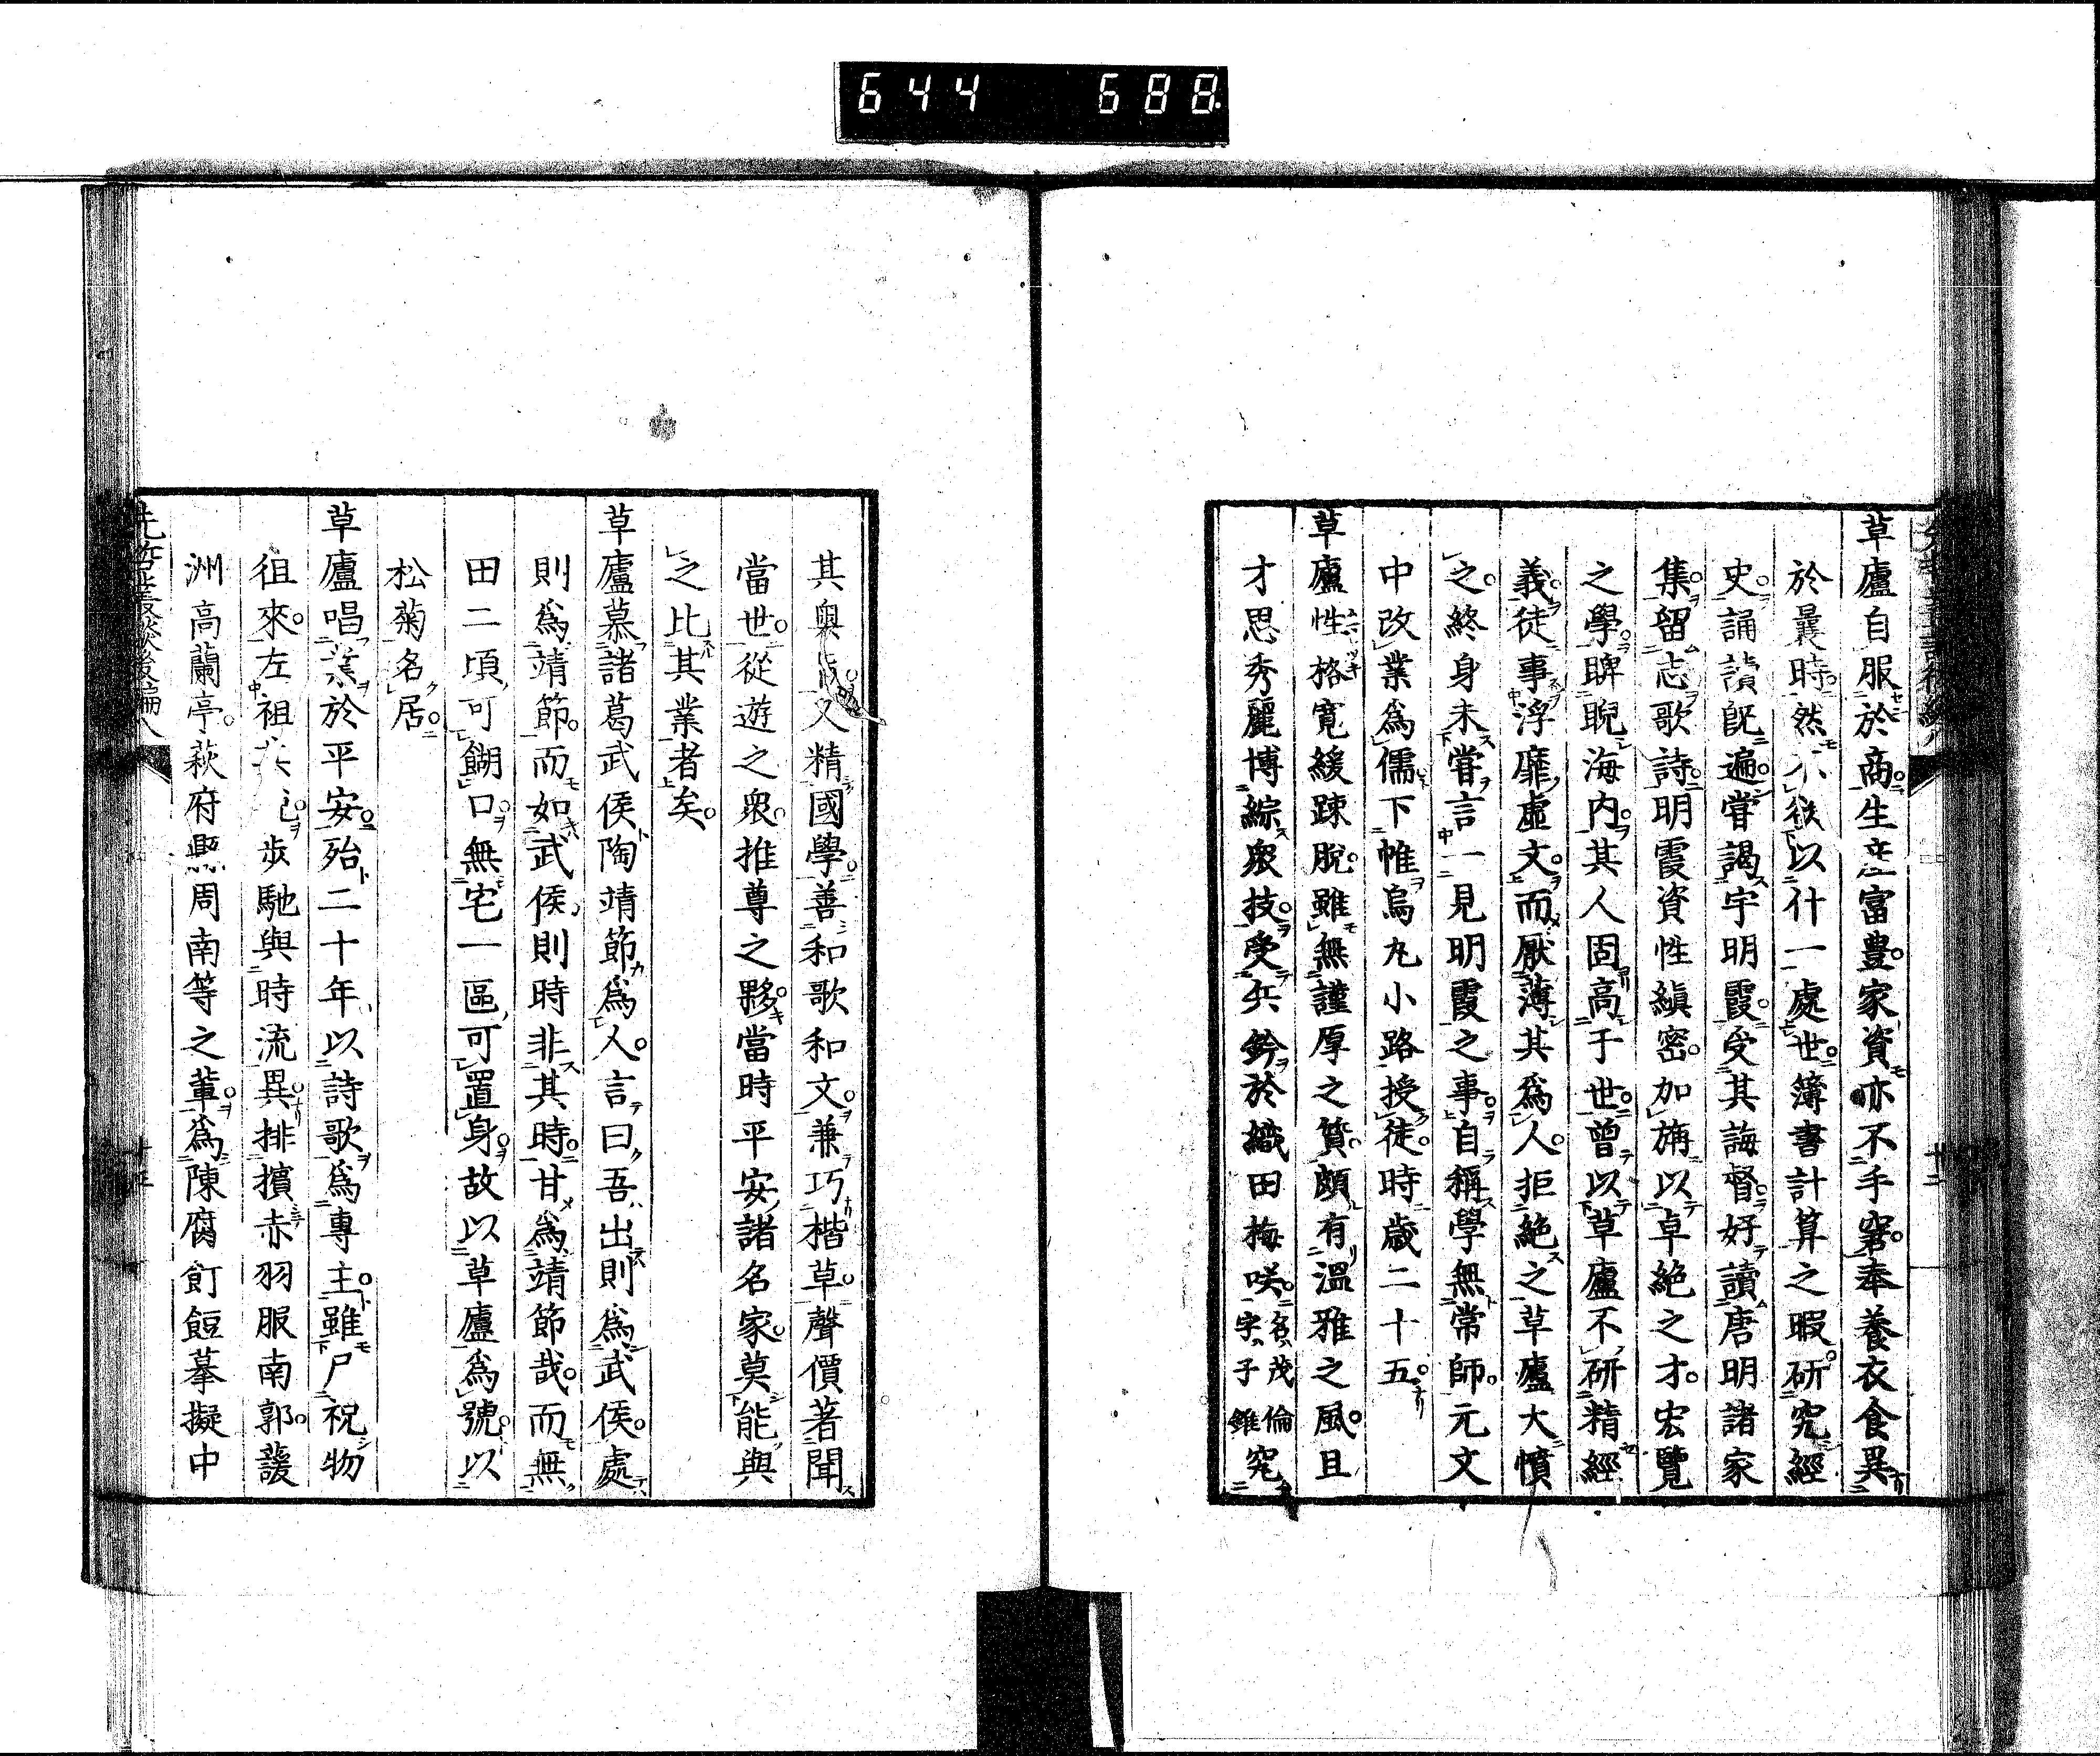 644 688
草廬自服於商生產富豊家資亦不手窘奉養衣食異
於曩時然不徒以什一處世簿書計算之暇研究經
史誦讀既遍嘗謁宇明霞受其誨督好讀唐明諸家
集留志歌詩明霞資性縝密加旃以卓絕之才宏覽
之學睥睨海内其人固高于世曾以草廬不研精經
義徒事浮靡虛文而厭薄其爲人拒絕之草廬大憤
之終身未嘗言一見明霞之事自稱學無常師元文
中改業爲儒下帷烏丸小路授徒時歲二十五
草廬性格寬緩踈脫雖無謹厚之質頗有溫雅之風且
才思秀麗博綜衆技受兵鈐於織田梅咲名茂倫字子錐究
其奥又精國學善和歌和文兼巧楷草聲價著聞
當世從遊之衆推尊之夥當時平安諸名家莫能與
之比其業者矣
草廬慕諸葛武侯陶靖節爲人言曰吾出則爲武侯處
則爲靖節而如武侯則時非其時甘爲靖節哉而無
田二頃可餬口無宅一區可置身故以草廬爲號以
松菊名居
草廬唱業於平安殆二十年以詩歌爲專主雖尸祝物
徂來左祖步馳與時流異排擯赤羽服南郭諼
洲高蘭亭萩府縣周南等之輩爲陳腐飣餖摹擬中
先哲叢談後編八